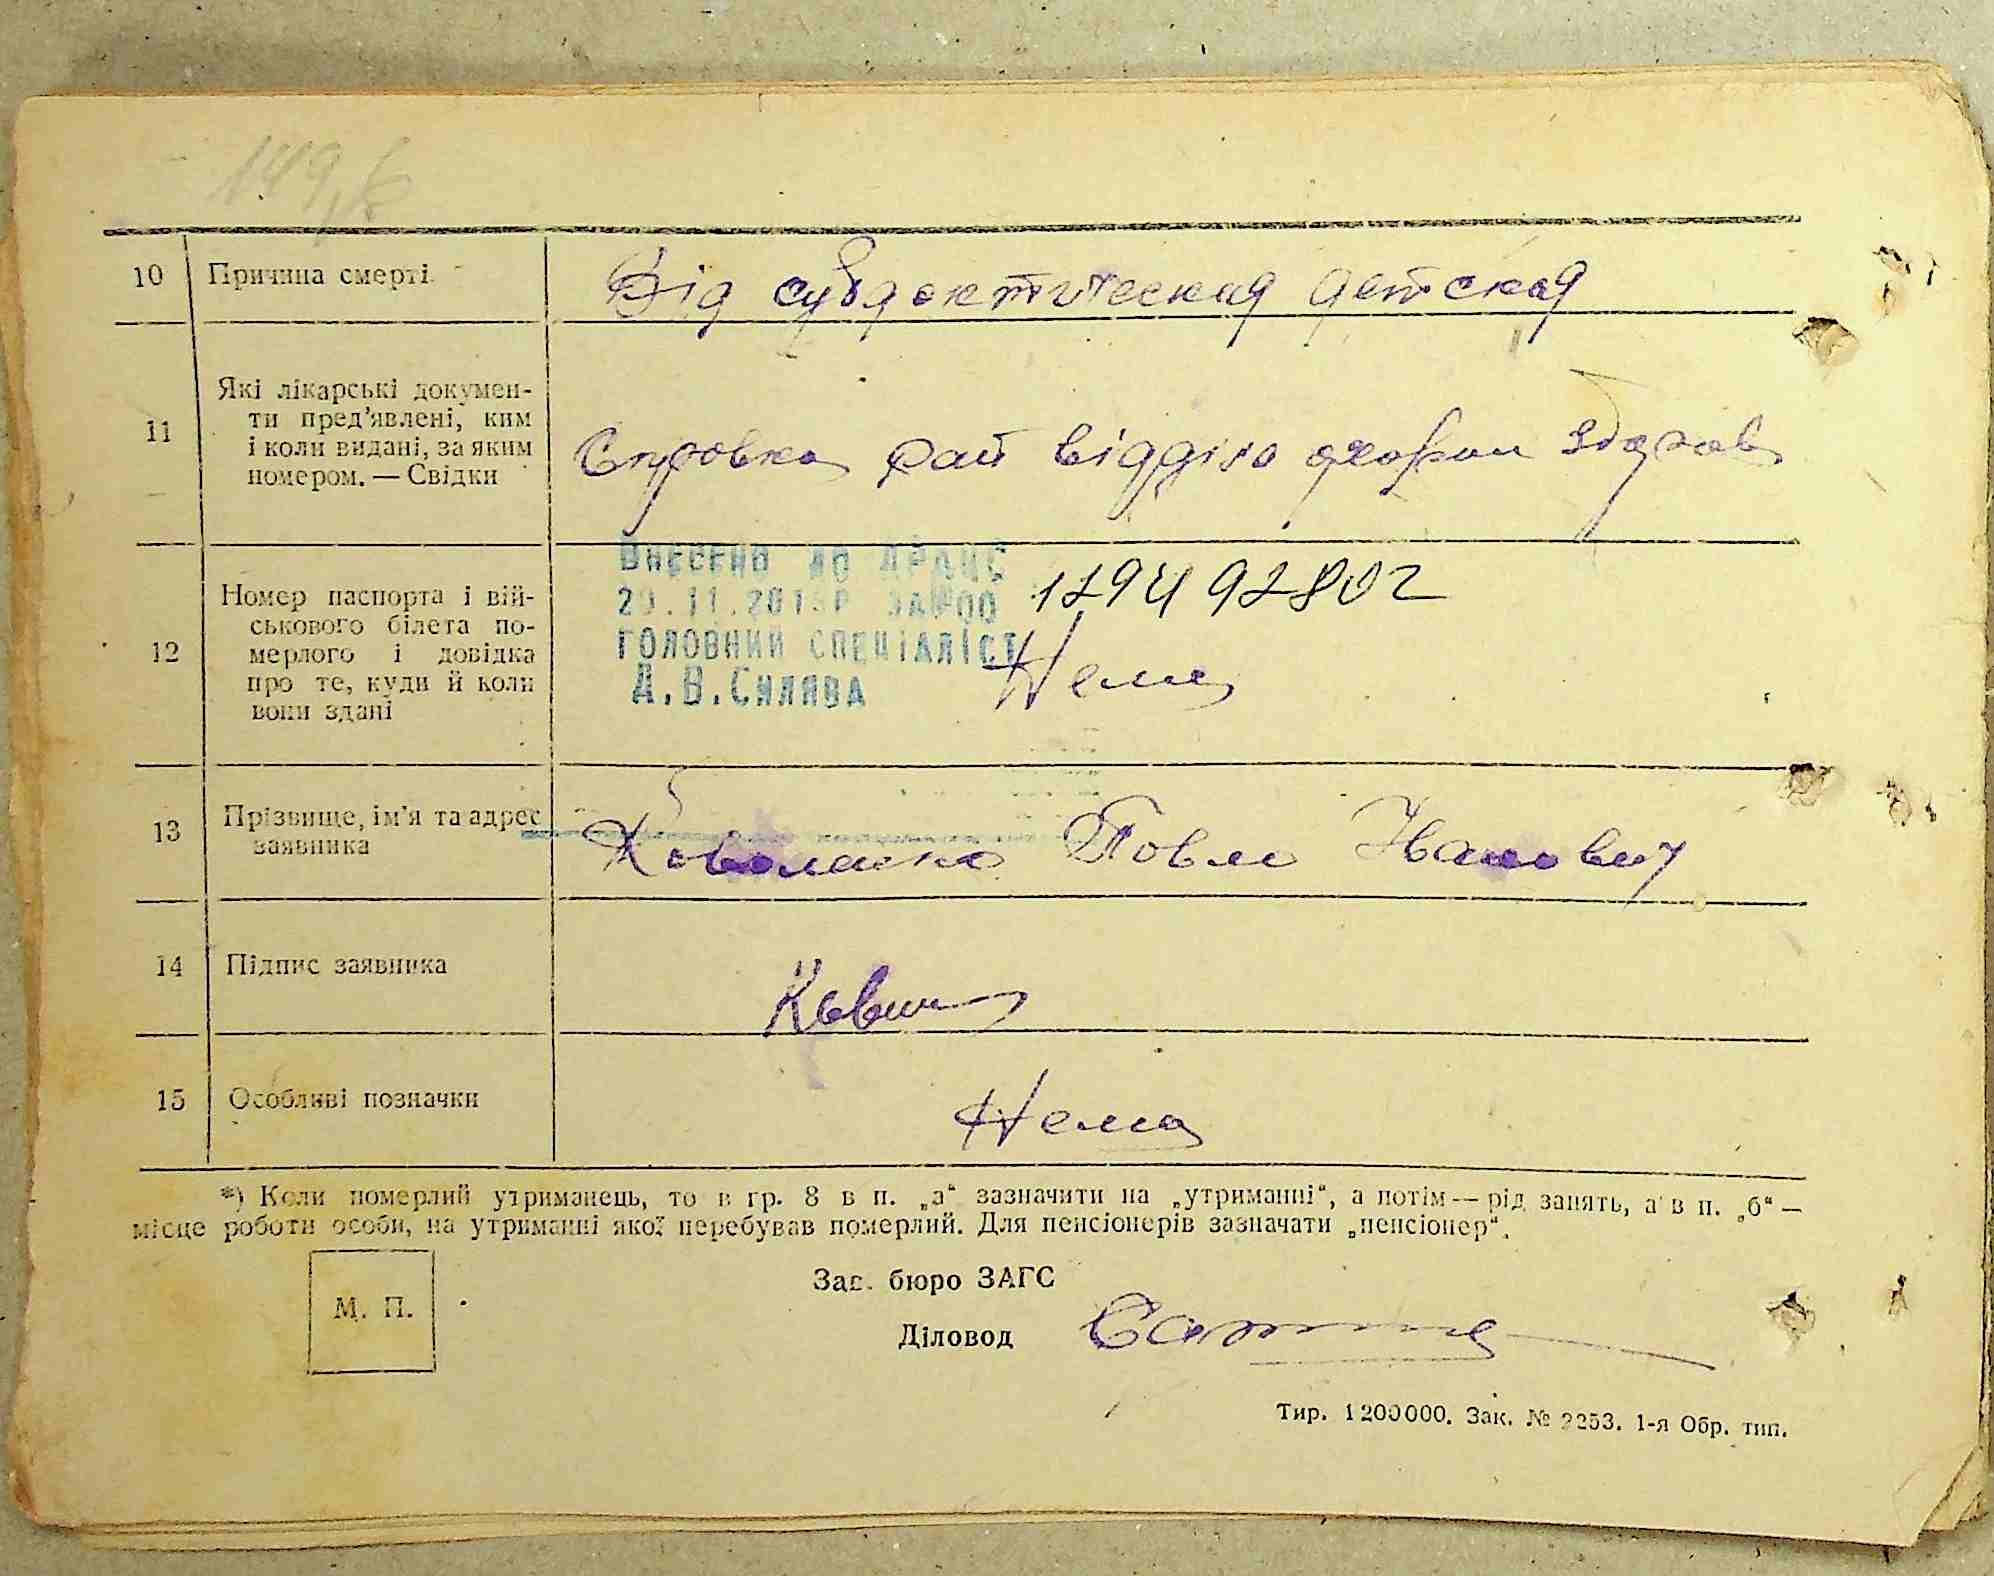 10 Причина смерті Від
11 Які лікарські докумен-
ти пред'явлені, ким
і коли видані, за яким
номером. — Свідки
Справка рай відділа охорони здоров
12 Номер паспорта і вій-
ськового білета по-
мерлого і довідка
про те, куди й коли
вони здані
ВНЕСЕНО ДО ДРАЦС
ГОЛОВНИЙ СПЕЦІАЛІСТ
Д.В.СИЛЯВА
Нема
13 Прізвище, ім'я та адрес
заявника
Павло Іванович
14 Підпис заявника
15 Особливі позначки Нема
*) Коли померлий утриманець, то в гр. 8 в п. „а“ зазначити на „утриманні“, а потім — рід занять, а в п. „б“ —
місце роботи особи, на утриманні якої перебував померлий. Для пенсіонерів зазначати „пенсіонер“.
М. П.
Зав. бюро ЗАГС
Діловод
Тир. 1200000. Зак. № 2253. 1-я Обр. тип.